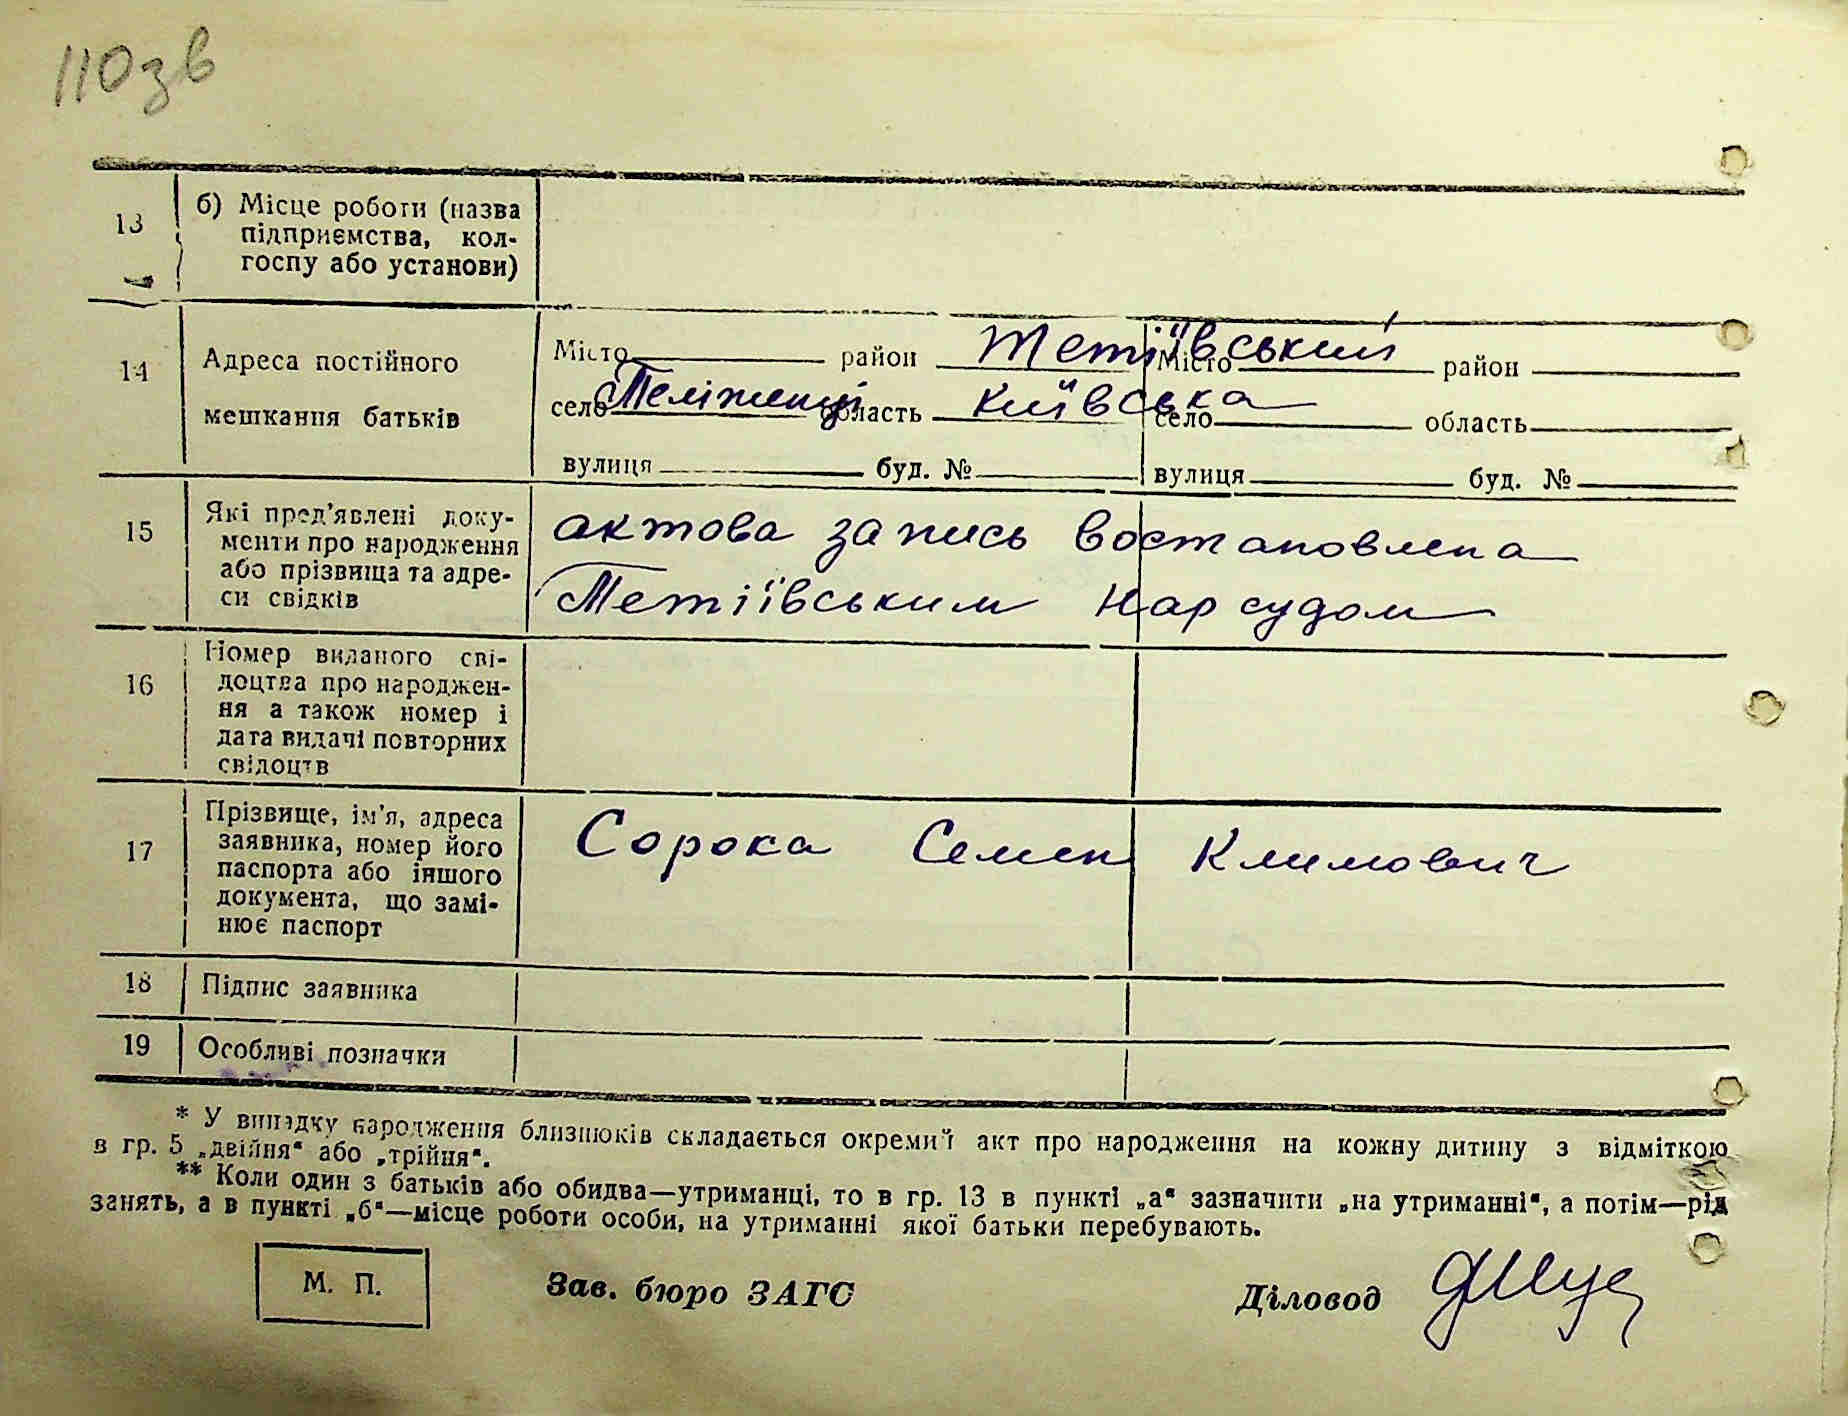 110 зв
13 б) Місце роботи (назва
підприємства, кол-
госпу або установи)
14 Адреса постійного
мешкання батьків
Місто район Тетіївський Місто район
село Теліженці область Київська село область
вулиця буд. № вулиця буд. №
15 Які пред'явлені доку-
менти про народження
або прізвища та адре-
си свідків
актова запись востановлена
Тетіївським нарсудом
16 Номер виданого сві-
доцтва про народжен-
ня а також номер і
дата видачі повторних
свідоцтв
17 Прізвище, ім'я, адреса
заявника, номер його
паспорта або іншого
документа, що замі-
нює паспорт
Сорока Семен Климович
18 Підпис заявника
19 Особливі позначки
* У випадку народження близнюків складається окремий акт про народження на кожну дитину з відміткою
в гр. 5 „двійня“ або „трійня“.
** Коли один з батьків або обидва—утриманці, то в гр. 13 в пункті „а“ зазначити „на утриманні“, а потім—рід
занять, а в пункті „б“—місце роботи особи, на утриманні якої батьки перебувають.
М. П. Зав. бюро ЗАГС Діловод